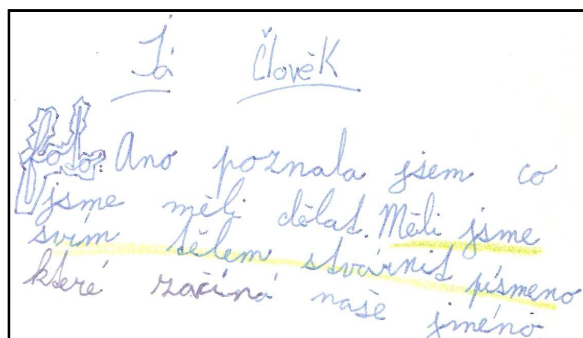 Já Člověk
foto: Ano poznala jsem co
jsme měli dělat. Měli jsme
svím tělem stvárnit písmeno
které začíná naše jméno